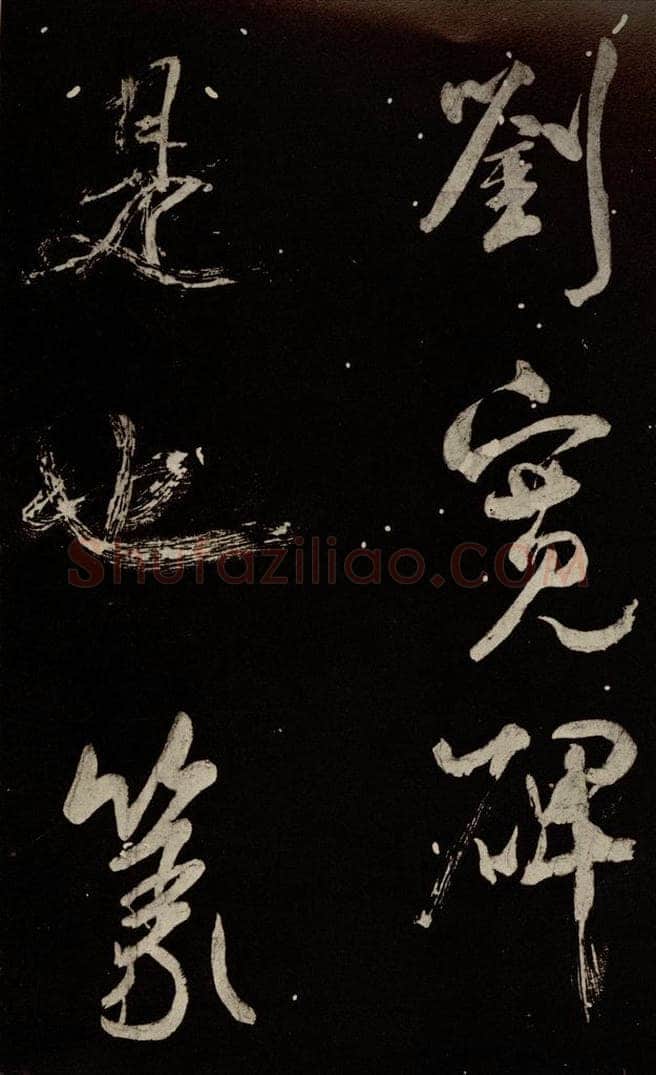 劉寬碑
是也篆
Shufaziliao.COM